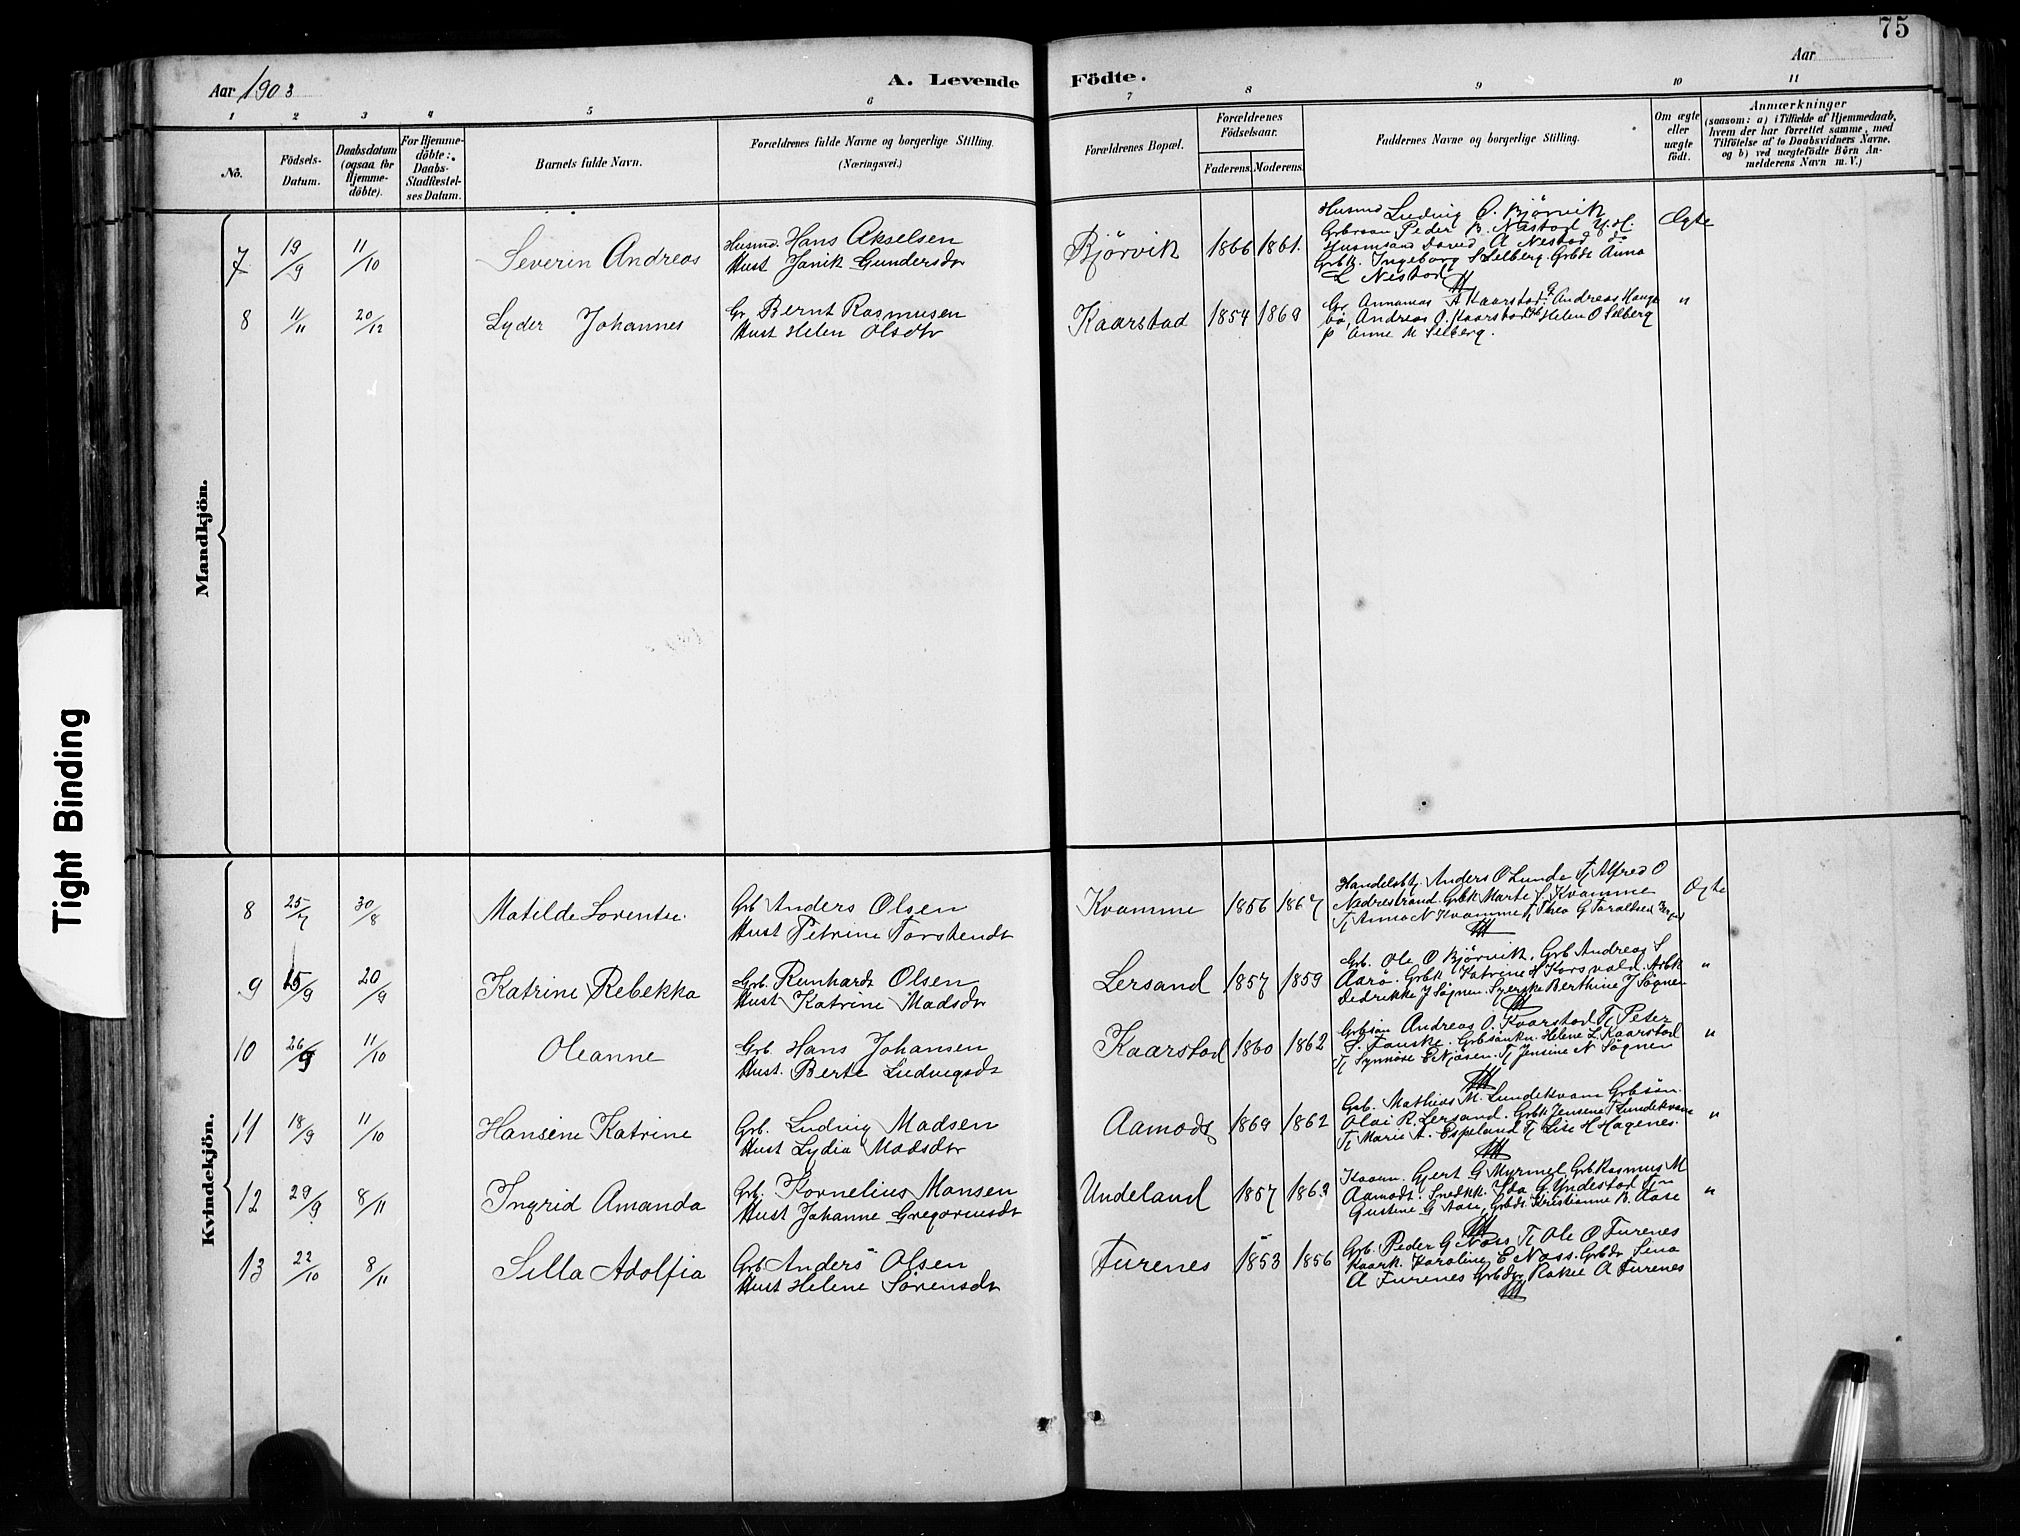 75
Aar 1903
A. Levende Födte.
Aar
1 2 3 4 5 6 7 8 9 10 11
No.
Födsels-Datum.
Daabsdatum (ogsaa for Hjemme-döbte).
For Hjemme-döbte: Daabs-Stadfæstel-ses Datum.
Barnets fulde Navn.
Forældrenes fulde Navne og borgerlige Stilling.
(Næringsvei.)
Forældrenes Bopæl.
Forældrenes Födselsaar.
Faderens. Moderens.
Faddernes Navne og borgerlige Stilling.
Om ægte eller uægte födt.
Anmærkninger
(saasom: a) i Tilfælde af Hjemmedaab,
hvem der har forrettet samme, med
Tilföielse af to Daabsvidners Navne,
og b) ved uægtefödte Börn An-
melderens Navn m. V.)
Mandkjön.
7 19/9 11/10 Severin Andreas
Husmd. Hans Akselsen
Hust Janik Gundersdr
Bjørvik 1866 1861.
Husmd Ludvig O. Bjørvik
Grbrsøn Peder B. Nestod
Husmsønd David A Nestod do
Grbk. Ingeborg S Selberg Grbdr Anna
L Nestod
Ægte
8 11/11 20/12 Lyder Johannes
Gr Bernt Rasmusen
Hust Helen Olsdtr
Kaarstad 1854 1869
Gr Annanias A Kaarstad Andreas Hauge
bø, Andreas O. Kaarstad Helen O Selberg
p Anne M Selberg.
"
Kvindekjön.
8 25/7 30/8 Matilde Lorentse.
Grb Anders Olsen
Hust Petrine Torstendt
Kvamme 1856 1867
Handelsbtj Anders O Lunde Tj Alfred O
Nedrestrand Grbk Marte S. Kvamme
Tj Anna N Kvamme Tj Thea G Taraldsen
Ægte
9 15/9 20/9 Katrine Rebekka
Grb. Renhardt Olsen
Hust Katrine Madsdr
Lersand 1857 1859
Grb. Ole O Bjørvik, Grb Andreas S
Aarö. Grbk Katrine H Korsvold. Arbk
Dedrikke J Sögnen. Syerske Berthine J Sögnen
"
10 26/9 11/10 Oleanne
Grb. Hans Johansen
Hust. Berte Ludvigsdt
Kaarstad 1860 1862
Grbsön Andreas O. Kaarstad Tj Peter
S. Fauske. Helene L. Kaarstad
Tj Synnöve E Njösen. Tj Jensine N Sögnen
"
11 18/9 11/10 Hansine Katrine
Grb. Ludvig Madsen
Hust Lydia Madsdtr
Aamodt 1869 1862
Grb. Mathias M. Lundekvam Grbsön.
Olai R. Lersand. Grbk Jensine T Lundekvam
Tj Marie A. Espeland Tj Lise H Hagenes.
"
12 29/9 8/11 Ingrid Amanda
Grb. Kornelius Monsen
Hust Johanne Gregoriusdt
Undeland 1857 1863
Gjert G Myrmel Grb Rasmus M
Aamodt. Snedkk. Ida G Yndestad
Gustine G Aase, Grbdr Kristianne B. Aase
"
13 22/10 8/11 Silla Adolfia
Grb Anders Olsen
Hust Helene Sörensdt
Furenes 1853 1856
Grb. Peder G Næss Tj Ole O Furenes
Kaark. Karoline E Næss. Grbdr Lina
A Furenes Grbdr Rakel A Furenes
Tight Binding